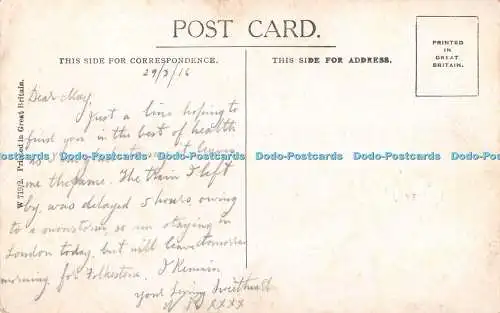 POST CARD.
THIS SIDE FOR CORRESPONDENCE.
THIS SIDE FOR ADDRESS.
PRINTED
IN
GREAT
BRITAIN.
W 719/2. Printed in Great Britain.
29/3/16
Dear May,
Just a line hoping to
find you in the best of health
as leaves
me the same. The train I left
by, was delayed 5 hours, owing
to a snowstorm, so am staying in
London today, but will leave tomorrow
morning for Folkestone. I Remain
your loving Sweetheart
xxxx
Dodo-Postcards Dodo-Postcards Dodo-Postcards Dodo-Postcards Dodo-Postcards